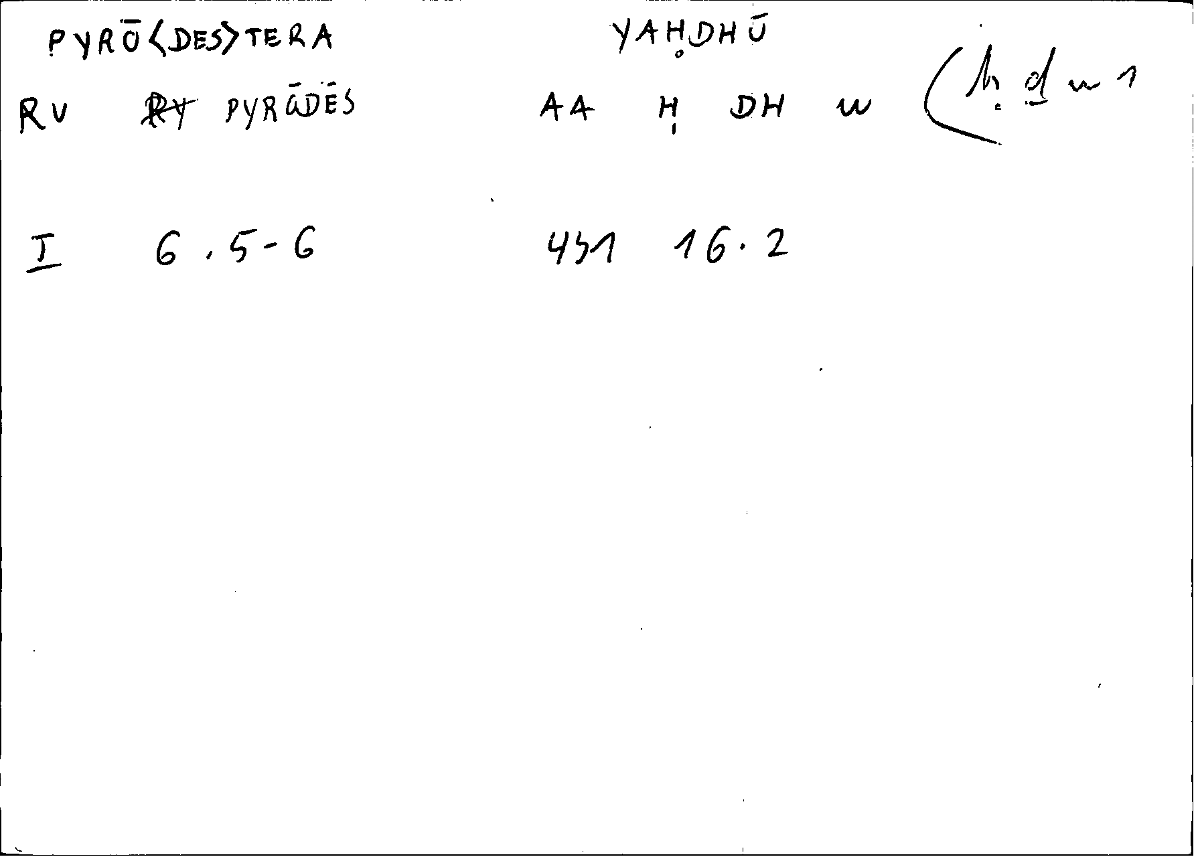 PYRŌ<DES>TERA YAḤDHŪ
RU PYRŌDĒS AA Ḥ DH W (ḥ ḏ w 1
I 6.5-6 431 16.2